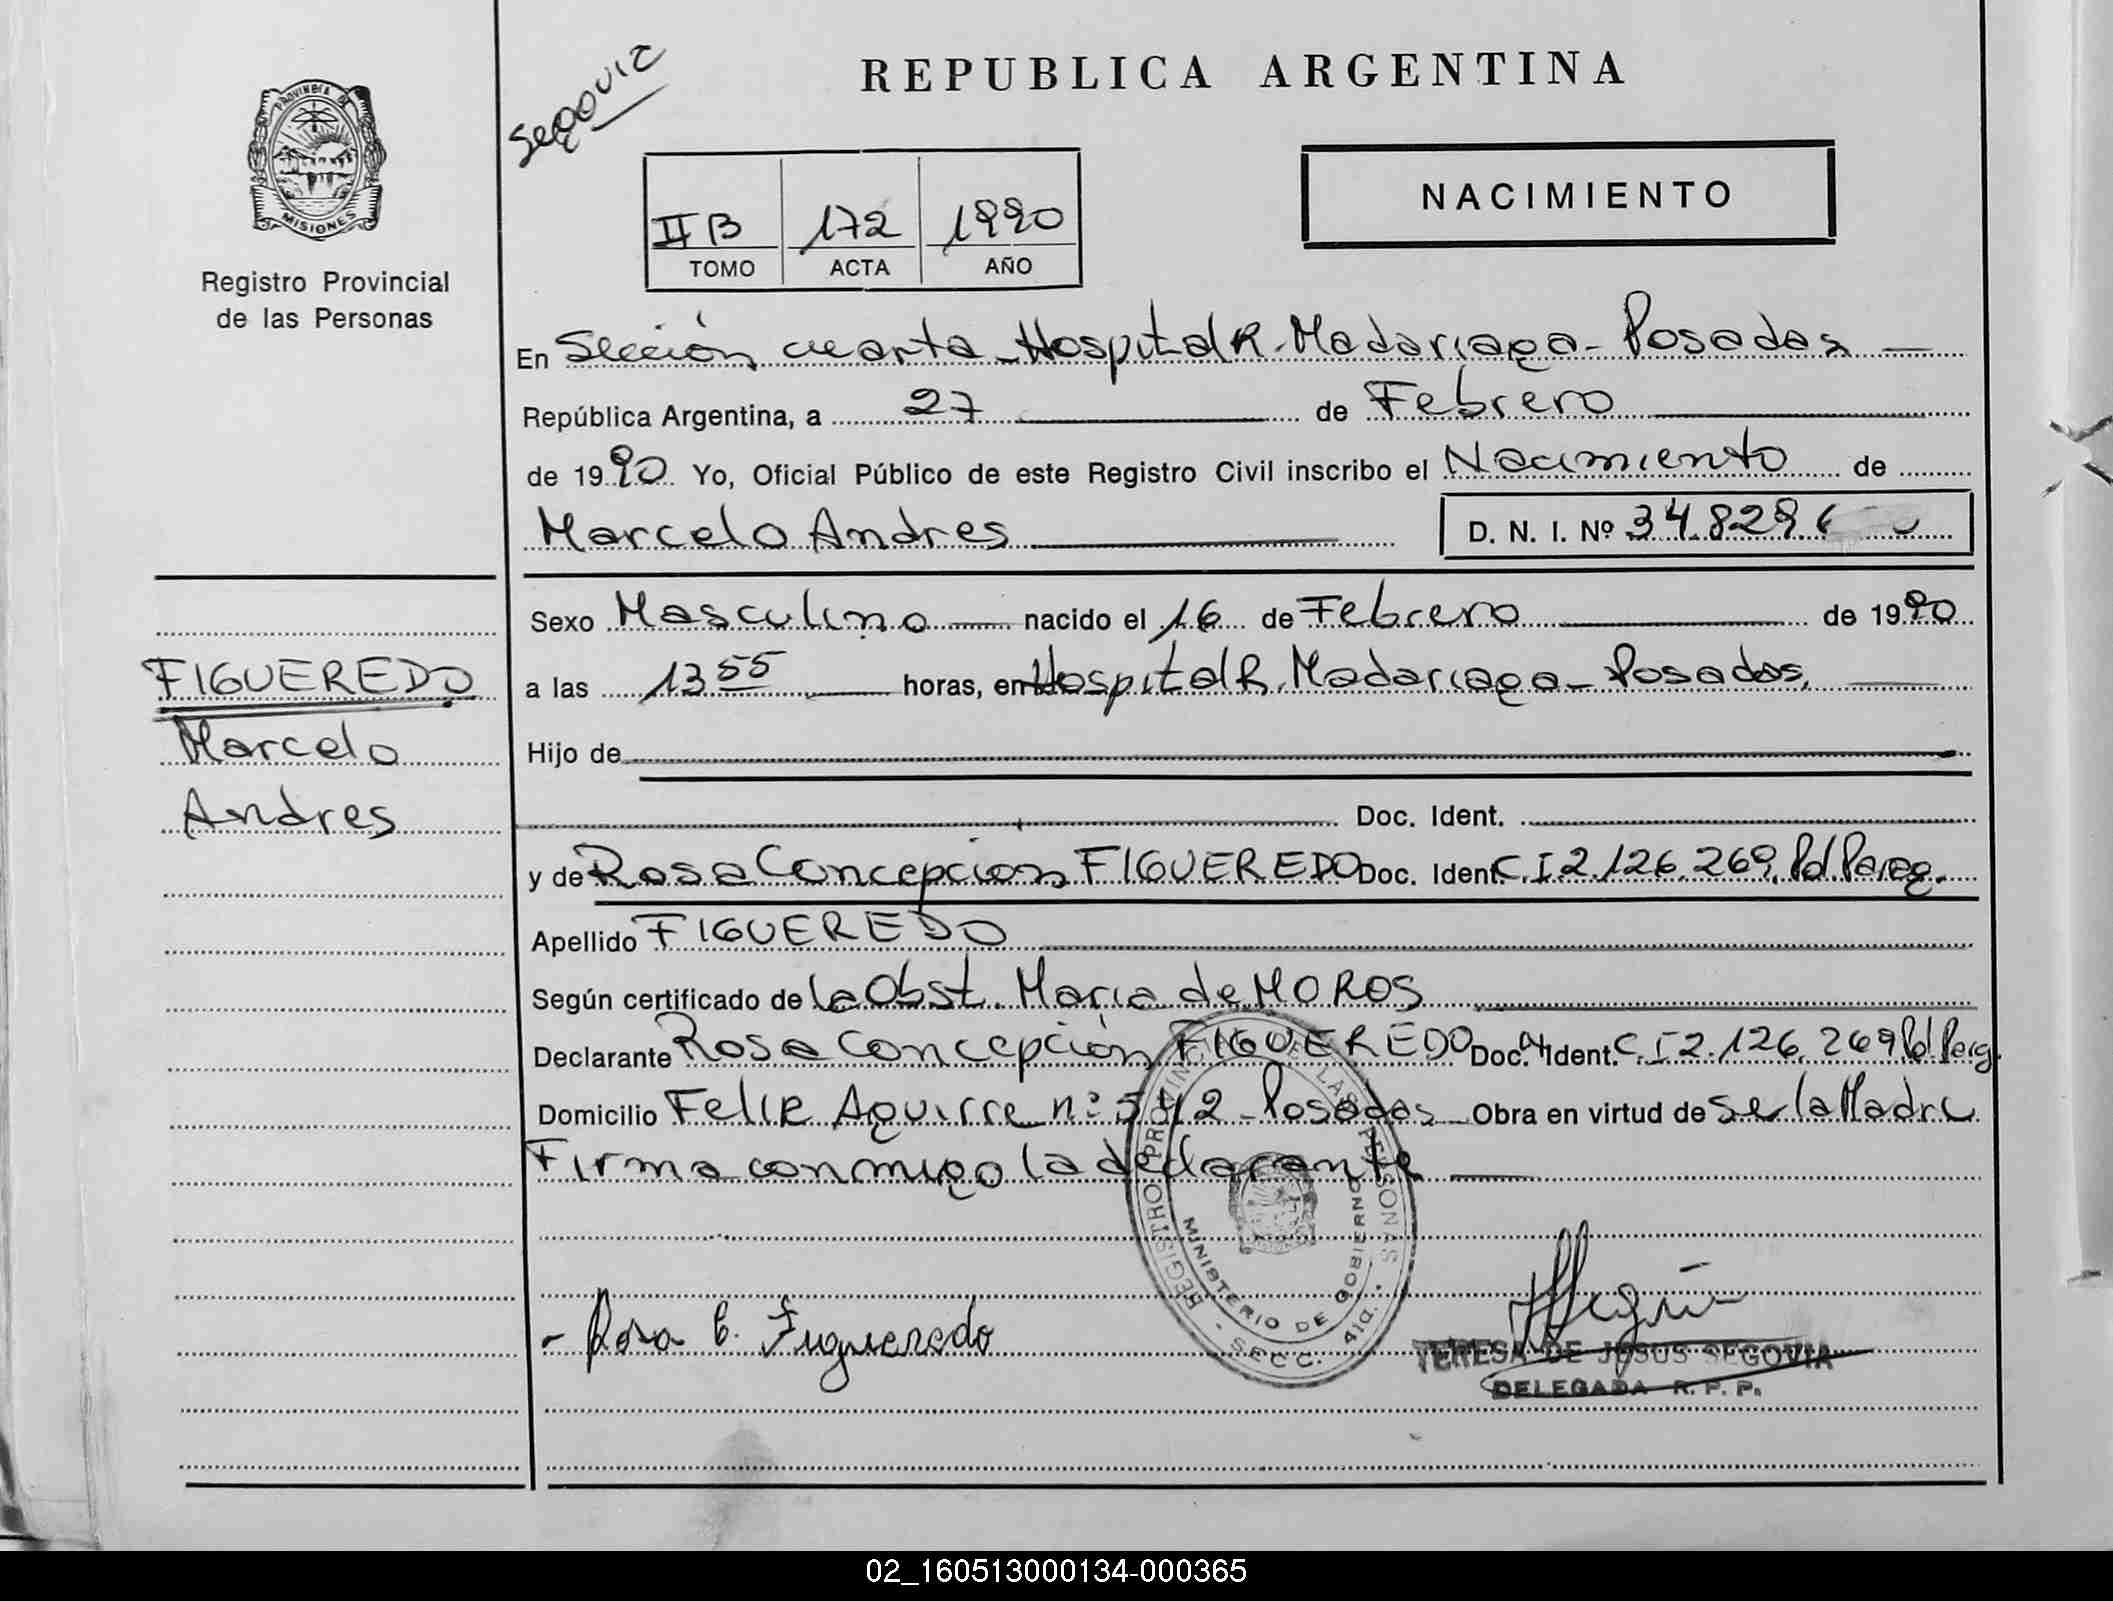 PROVINCIA DE
MISIONES
Registro Provincial
de las Personas
Segovia
REPUBLICA ARGENTINA
NACIMIENTO
II B 172 1990
TOMO ACTA AÑO
En Sección cuarta - Hospital R. Madariaga - Posadas
República Argentina, a 27 de Febrero
de 1990 Yo, Oficial Público de este Registro Civil inscribo el Nacimiento de
Marcelo Andres D. N. I. Nº 34.829.6
Sexo Masculino nacido el 16 de Febrero de 1990
a las 13 55 horas, en Hospital R. Madariaga - Posadas,
Hijo de
Doc. Ident.
y de Rosa Concepcion FIGUEREDO Doc. Ident. C.I 2.126.269. Pol Parag.
Apellido FIGUEREDO
Según certificado de la Obst. Maria de MOROS
Declarante Rosa Concepción FIGUEREDO Doc. Ident. C.I 2.126.269 Pol Parg.
Domicilio Felix Aguirre nº 542 - Posadas Obra en virtud de Se la Madre
Firma conmigo la declarante
FIGUEREDO
Marcelo
Andres
REGISTRO PROVINCIAL DE LAS PERSONAS
MINISTERIO DE GOBIERNO
- SECC. 4ta. -
- Rosa C. Figueredo
TERESA DE JESUS SEGOVIA
DELEGADA R. P. P.
02_160513000134-000365